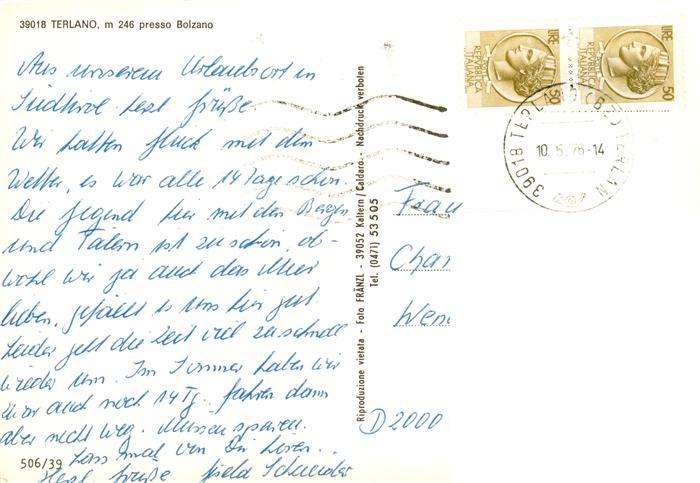 39018 TERLANO, m 246 presso Bolzano
Aus unserem Urlaubsort in
Südtirol herzl. Grüße.
Wir hatten Glück mit dem
Wetter, es war alle 14 Tage schön.
Die Gegend hier mit den Bergen
und Tälern ist zu schön, ob-
wohl wir ja auch das Meer
lieben, gefällt es uns hier gut
Leider geht die Zeit viel zu schnell
wieder um. Im Sommer haben wir
zwar auch noch 14 Tg. fahren dann
aber nicht weg. Müssen sparen.
Lass mal von Dir hören..
Herzl. Grüße Gisela Schneider
506/39
Riproduzione vietata - Foto FRÄNZL - 39052 Kaltern/Caldaro - Nachdruck verboten
Tel. (0471) 53505
LIRE 50
REPVBBLICA
ITALIANA
LIRE 50
REPVBBLICA
ITALIANA
39018 TERLANO (BZ) TERLAN
10.5.76-14
Frau
Char
Wen
D 2000